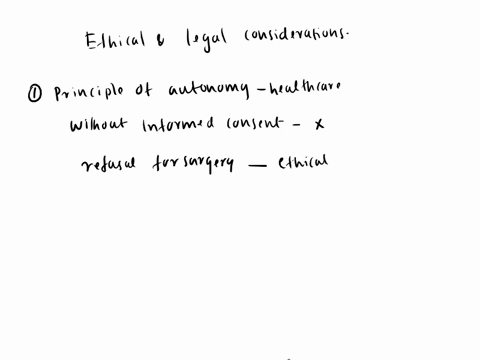 Ethical & legal considerations.
① Principle of autonomy - healthcare
without informed consent - x
refusal for surgery - ethical